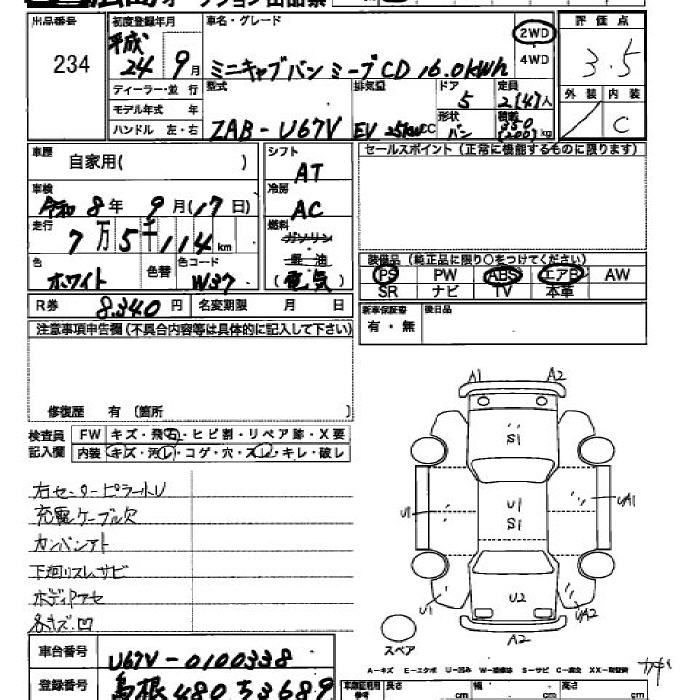 オークション出品票
出品番号
234
初度登録年月
平成
24年 9月
車名・グレード
ミニキャブバン ミーブCD 16.0kWh
2WD
・
4WD
評価点
3.5
外装 内装
C
ディーラー・並行
モデル年式 年
ハンドル 左・右
型式
ZAB-U67V
排気量
EV 25kw CC
ドア
5
形状
バン
定員
2(4)人
積載
350
(200)kg
車歴
自家用( )
シフト
AT
車検
令和 8年 9月(17日)
冷房
AC
走行
7万5千114km
燃料
ガソリン
軽油
(電気)
色
ホワイト
色替
色コード
W37
R券 8,340円 名変期限 月 日
セールスポイント(正常に機能するものに限ります)
装備品(純正品に限り○をつけてください)
PS PW ABS エアB AW
SR ナビ TV 本革
新車保証書
有・無
後日品
注意事項申告欄(不具合内容等は具体的に記入して下さい)
修復歴 有(箇所 )
検査員
記入欄
FW キズ・飛石・ヒビ割・リペア跡・X要
内装 キズ・汚レ・コゲ・穴・スレ・キレ・破レ
右センターピラー小U
充電ケーブル欠
カンバンアト
下廻リスレ、サビ
ボディアセ
小キズ、凹
A1 A2
S1
U1
U1
S1
UA1
U1
U2
UA2
A2
スペア
車台番号
U67V-0100338
登録番号
島根 480 53689
長さ cm 幅 cm 高さ cm